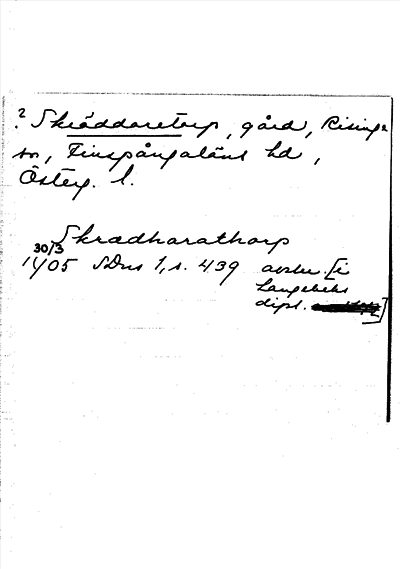 ? Skräddaretorp, gård, Risinge
sn, Finspångaläns hd,
Österg. l.
Skradharathorp
30/3
1405 SDns 1, s. 439 avskr. [i
Langebeks
dipl.
]